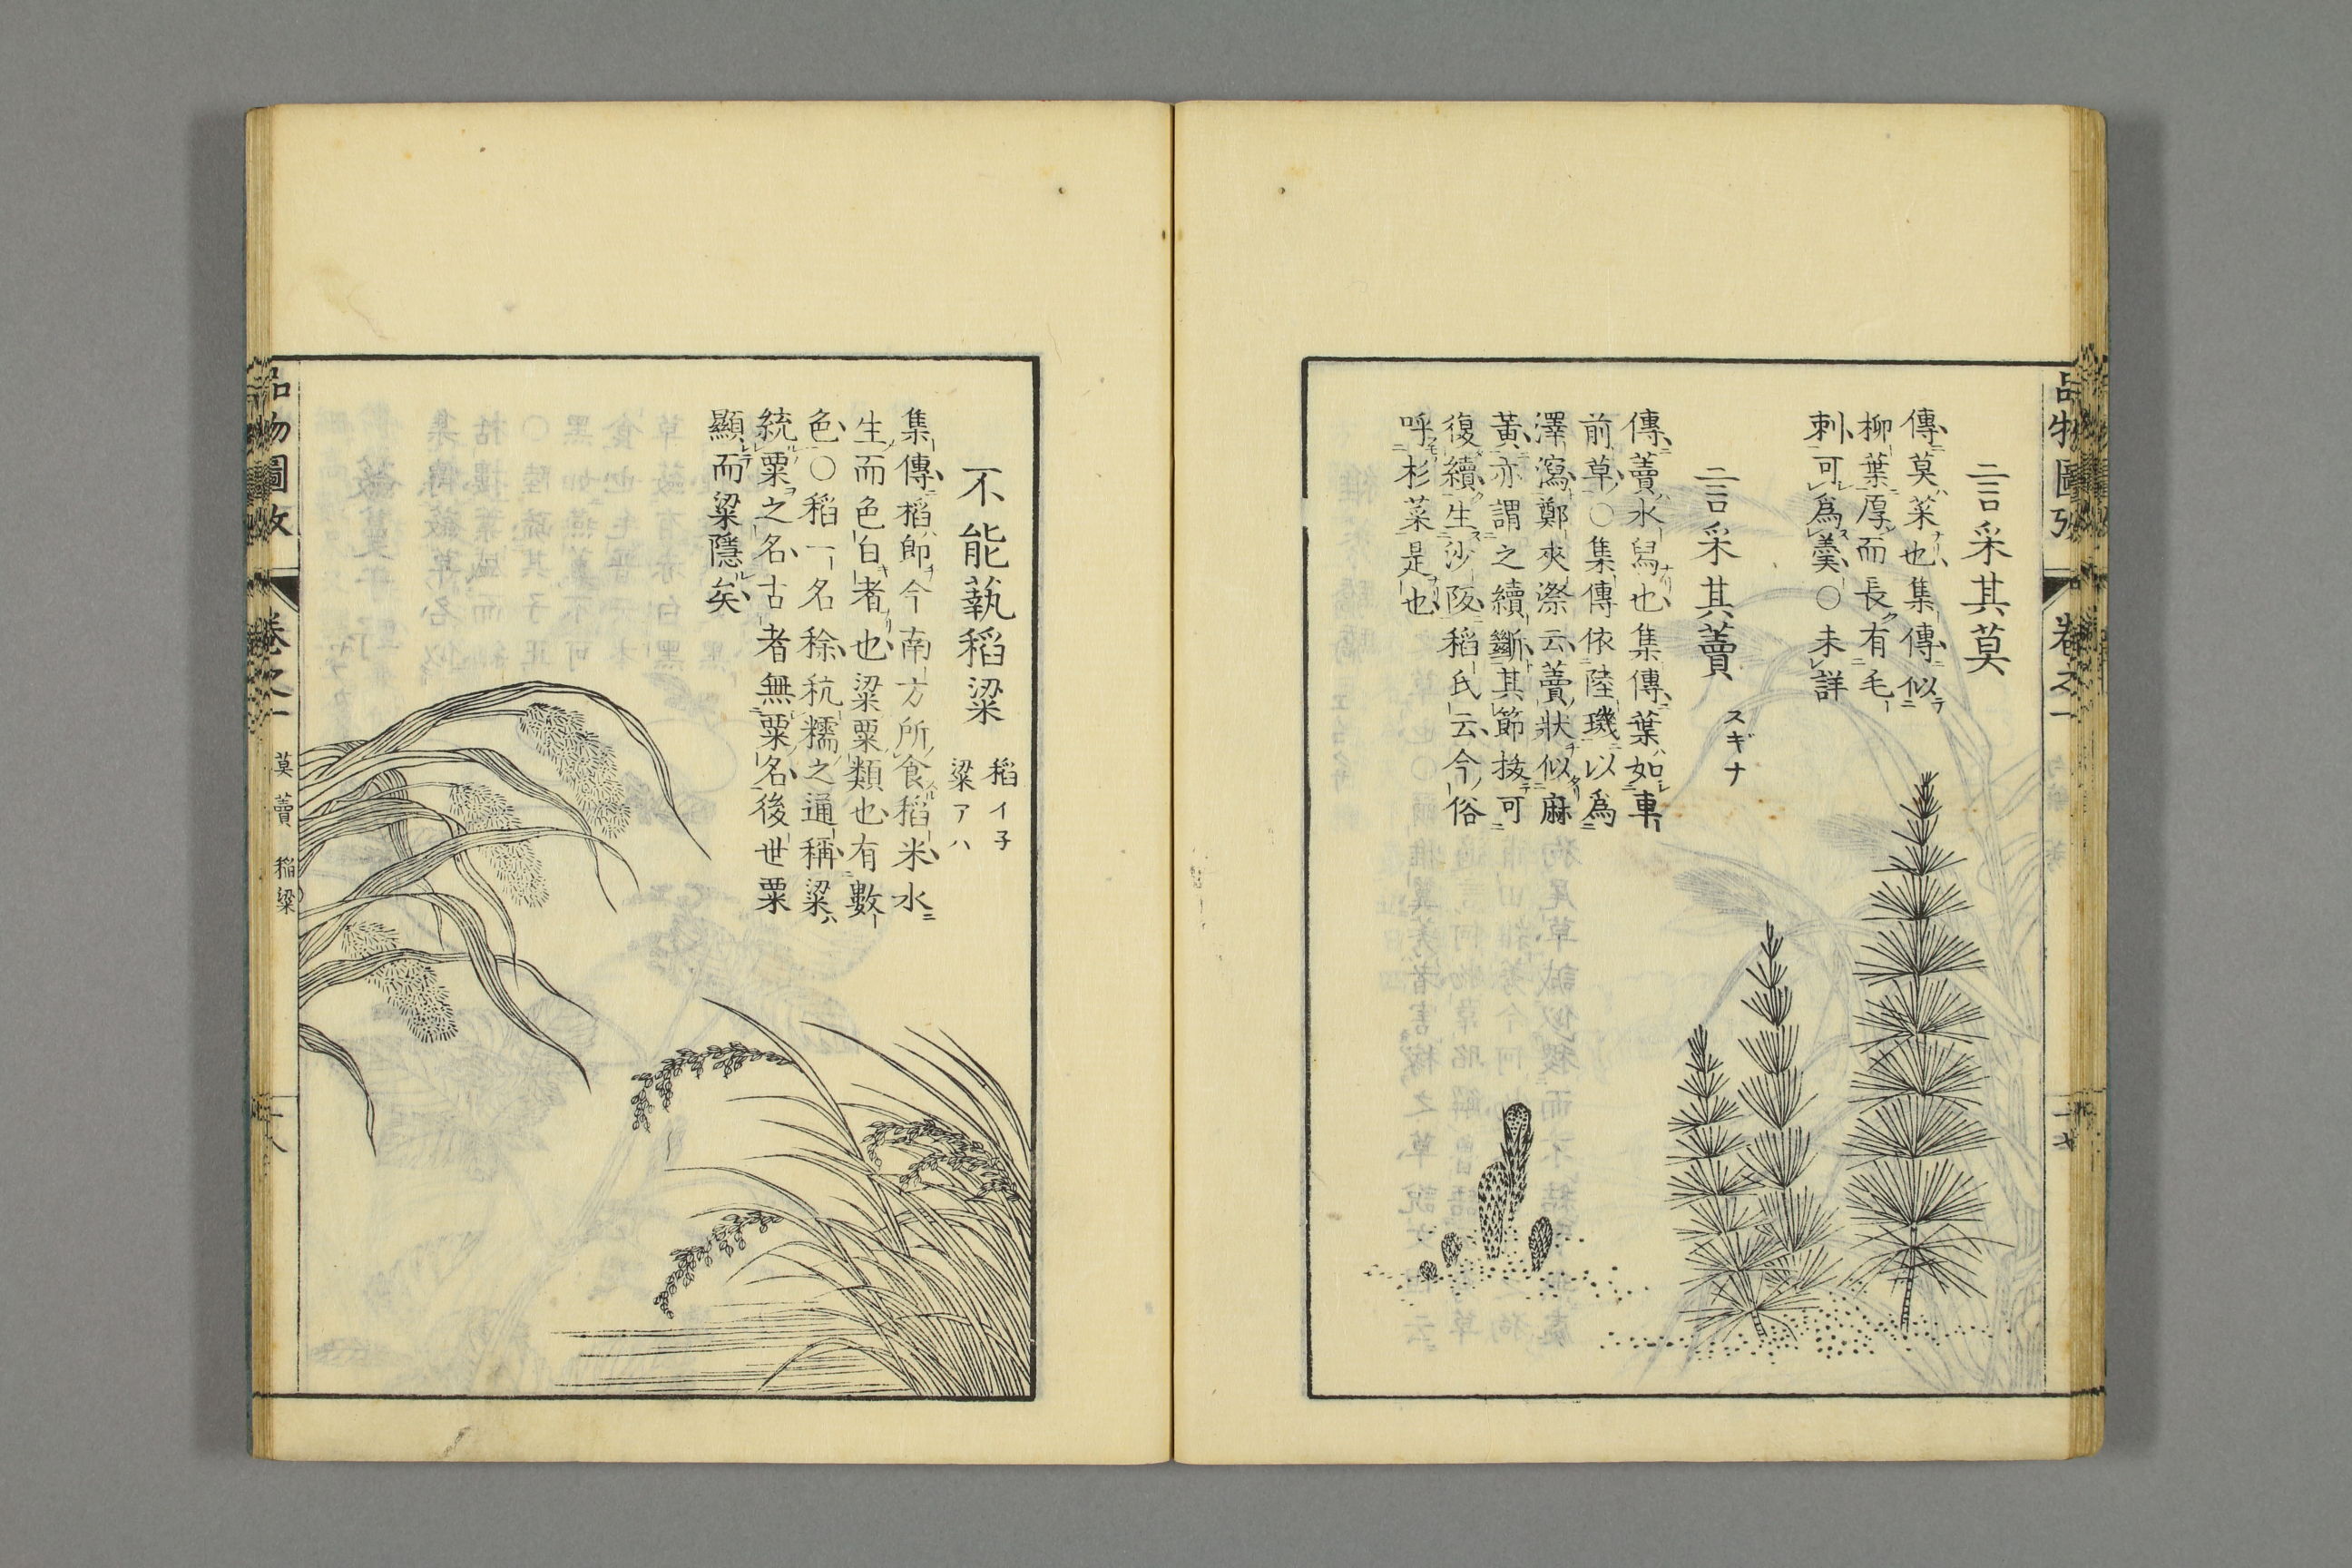 言采其莫
傳莫菜也集傳似
柳葉厚而長有毛
刺可爲羹○未詳
言采其藚 スギナ
傳藚水舃也集傳葉如車
前草○集傳依陸璣以爲
澤瀉鄭夾漈云藚狀似麻
黃亦謂之續斷其節拔可
復續生沙阪稻氏云今俗
呼杉菜是也
不能蓺稻粱
稻イ子
粱アハ
集傳稻卽今南方所食稻米水
生而色白者也粱粟類也有數
色○稻一名稌秔糯之通稱粱
統粟之名古者無粟名後世粟
顯而粱隱矣
品物圖攷 卷之一 莫 藚 稻粱